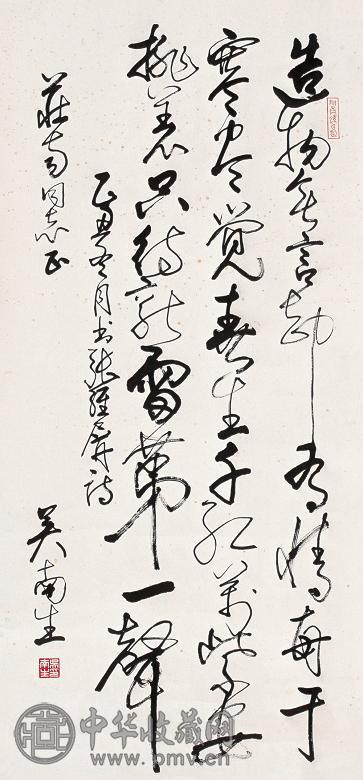 造物無言却有情每于
寒尽觉春生千红万紫安
排着只待新雷第一聲
乙丑冬月书张维屏诗
吴南生
莊 同志正
中华收藏网
www.pmv.cn